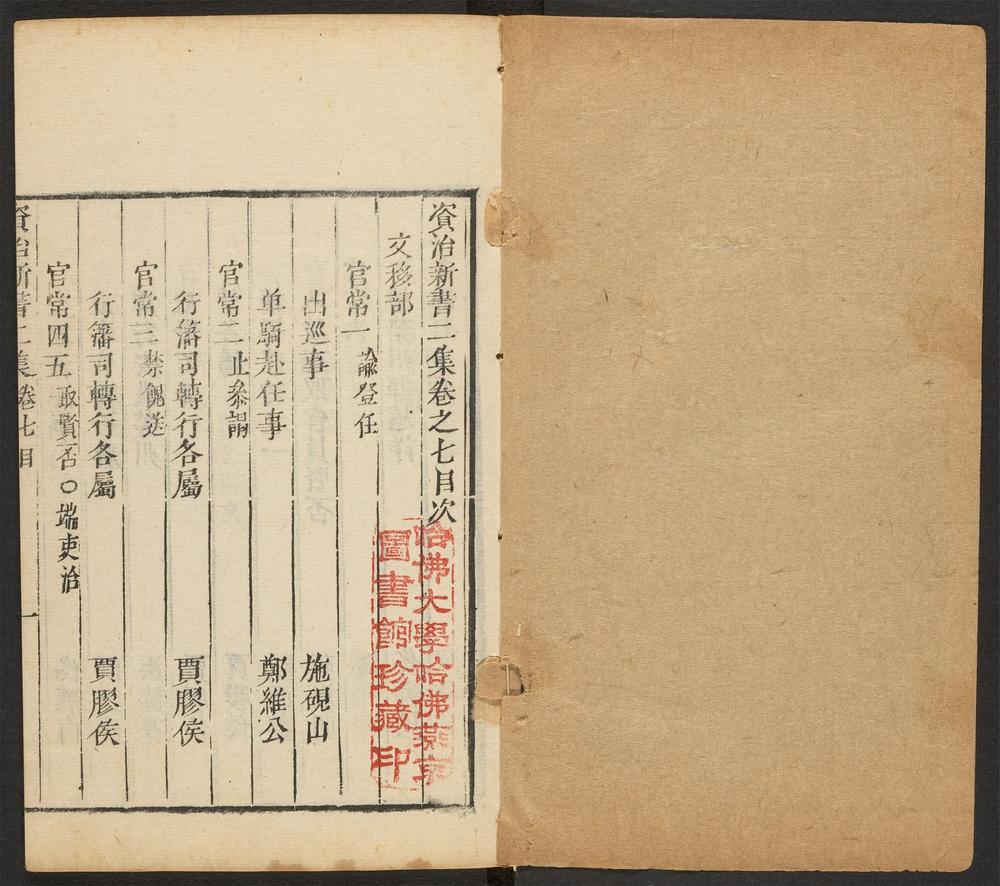 資治新書二集卷之七目次
文移部
官常一 諭登任
出巡事 施硯山
单騎赴任事 鄭維公
官常二 止參謁
行藩司轉行各屬 賈膠侯
官常三 禁餽送
行藩司轉行各屬 賈膠侯
官常四五 取賢否○端吏治
資治新書二集 卷七目 一
哈佛大學哈佛燕京
圖書館珍藏印